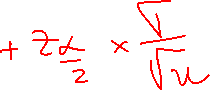 + Z α/2 × σ/√n